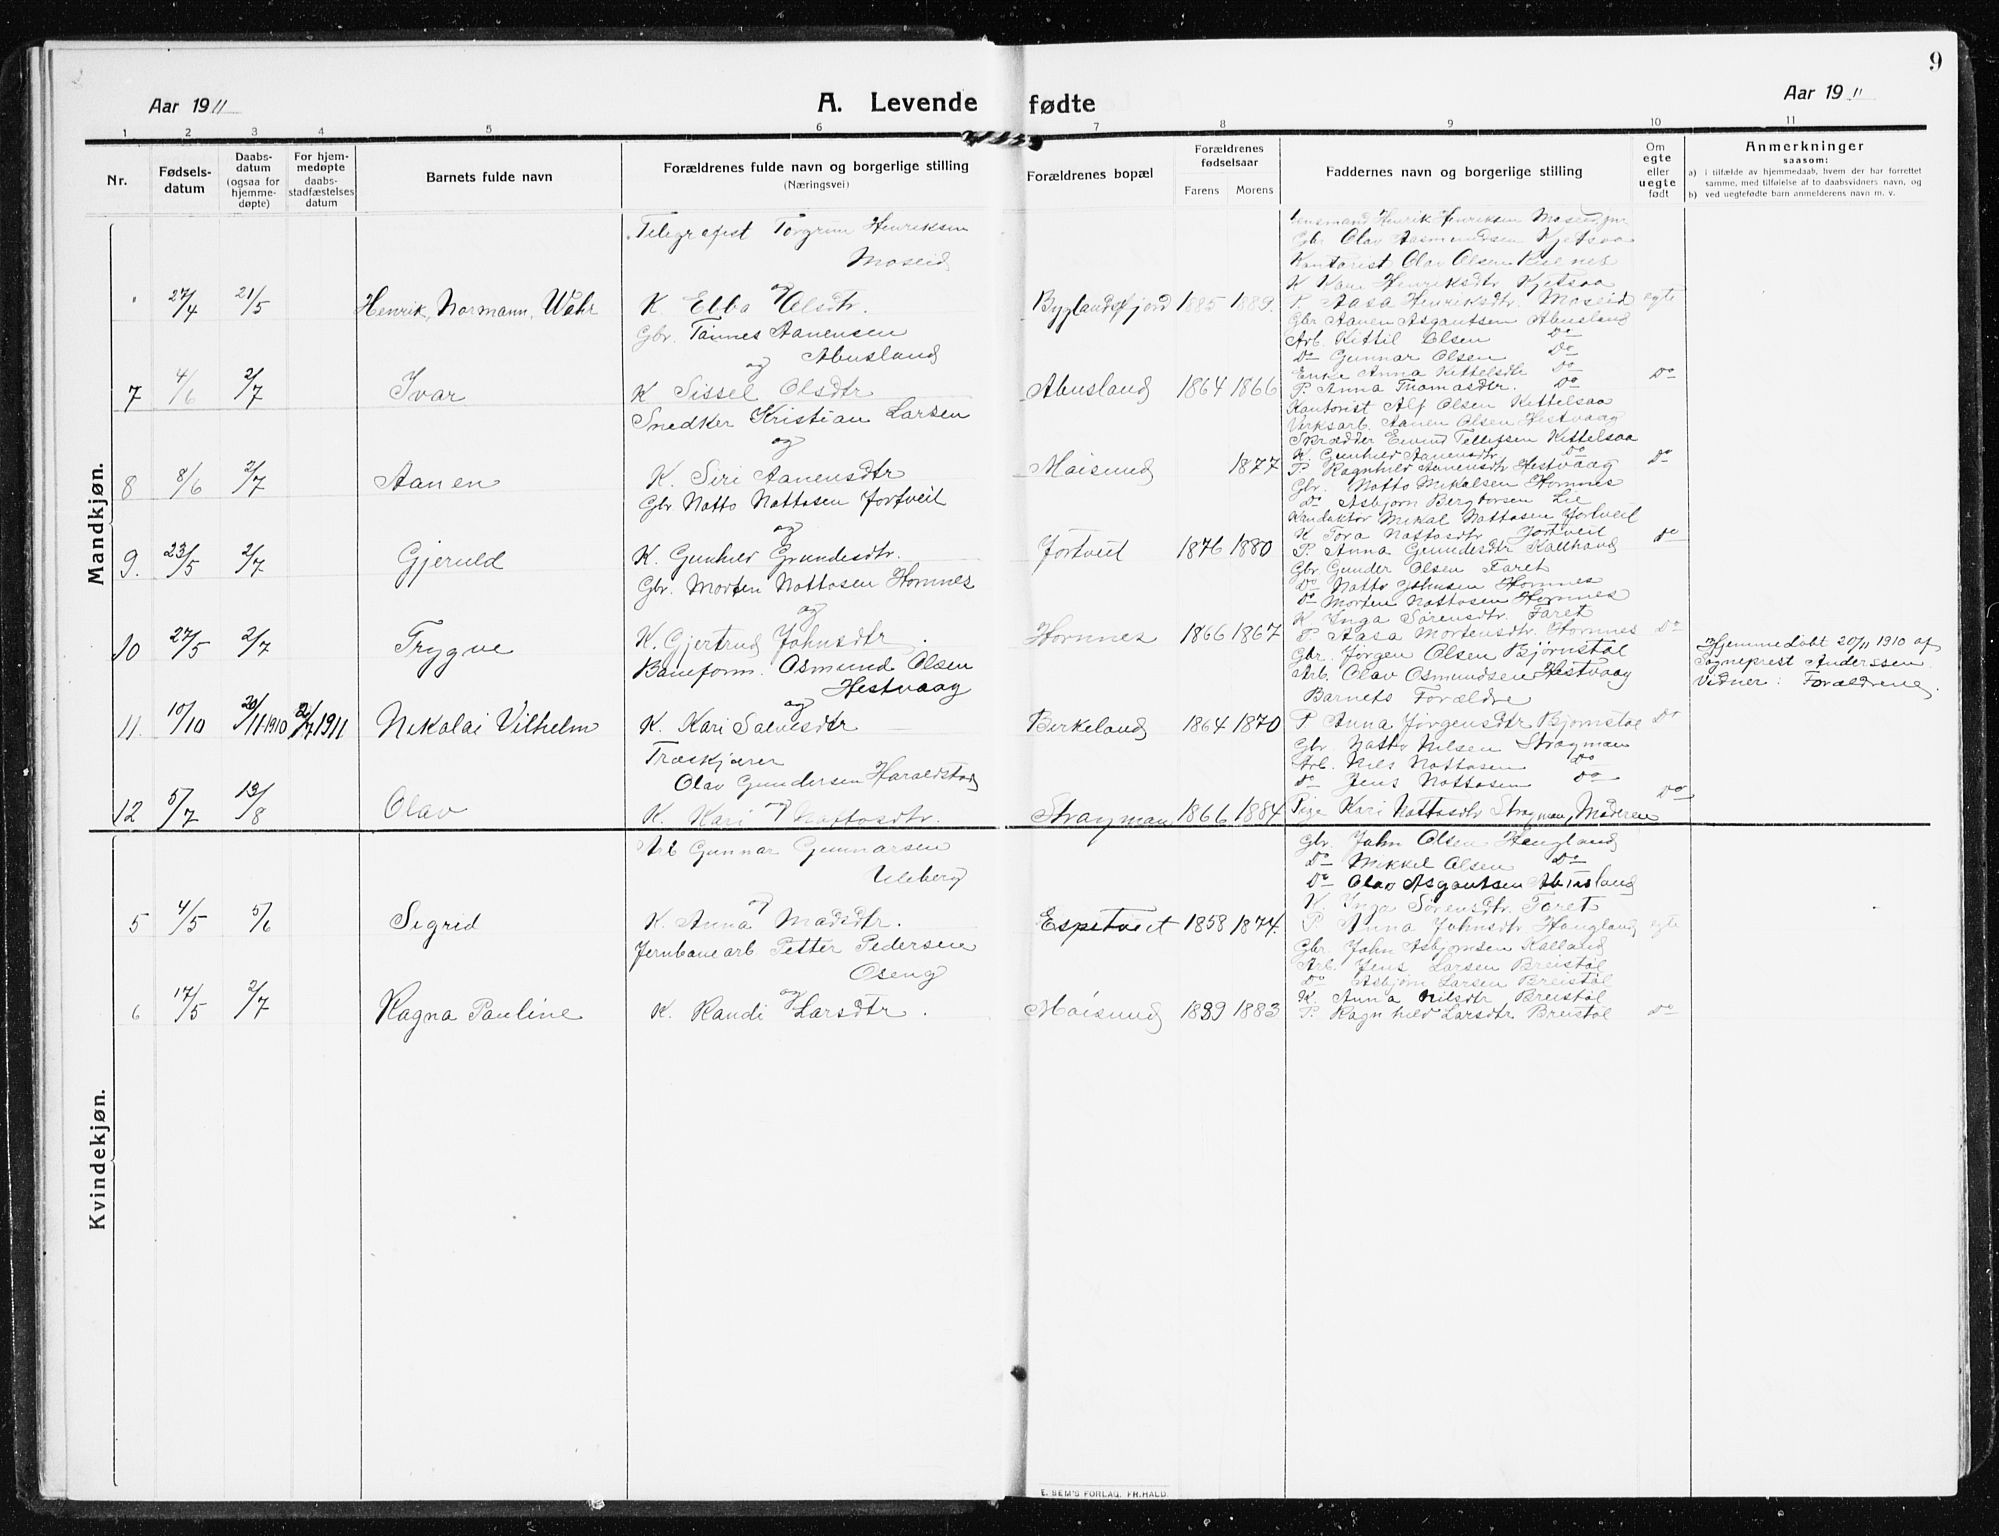 9
Aar 1911
A. Levende fødte
Aar 1911
1 2 3 4 5 6 7 8 9 10 11
Nr.
Fødsels-
datum
Daabs-
datum
(ogsaa for
hjemme-
døpte)
For hjem-
medøpte
daabs-
stadfæstelses
datum
Barnets fulde navn
Forældrenes fulde navn og borgerlige stilling
(Næringsvei)
Forældrenes bopæl
Forældrenes
fødselsaar
Farens Morens
Faddernes navn og borgerlige stilling
Om
egte
eller
uegte
født
Anmerkninger
saasom:
a) i tilfælde av hjemmedaab, hvem der har forrettet
samme, med tilføielse af to daabsvidners navn, og
b) ved uegtefødte barn anmelderens navn m. v.
Mandkjøn.
27/4 21/5 Henrik, Normann, Wahr
Telegrafist Torgrim Henriksen
Moseid
og
K. Ebba Olsdtr.
Byglandsfjord 1885 1889.
Lensmand Henrik Henriksen Moseid jnr
Gbr Olav Aasmundsen Kjetsaa
Kontorist Olav Olsen
K Kari Henriksdtr Kjetsaa
P. Aasa Henriksdtr. Moseid
egte
7 4/6 2/7 Ivar
Gbr. Tønnes Aanensen
Abusland
og
K Sissel Olsdtr
Abusland 1864 1866
Gbr Aanen Asgautsen Abusland
Arb. Kittil Olsen Do
Do Gunnar Olsen Do
Enke Anna Kittelsdtr Do
P. Anna Thomasdtr. Do
Do
8 8/6 2/7 Aanen
Snedker Kristian Larsen
og
K. Siri Aanensdtr
Moisund 1877
Kontorist Alf Olsen Kittelsaa
Verksarb. Aanen Olsen Hestvaag
Skrædder Eivind Tellefsen Kittelsaa
K. Gunhild Aanensdtr Do
P. Ragnhild Aanensdtr Hestvaag
Do
9. 23/5 2/7 Gjeruld
Gbr Notto Nottosen Jortveit
og
K. Gunhild Grundesdtr.
Jortveit 1876 1880
Gbr. Notto Mikalsen Hornnes
Do Asbjørn Bergtorsen Lie
Konduktør Mikal Nottosen Jortveit
K Tora Nottosdtr Jortveit
P. Anna Gundesdtr Kallhovd
Do
10 27/5 2/7 Trygve
Gbr. Morten Nottosen Hornnes
og
K. Gjertrud Johnsdtr.
Hornnes 1866 1867
Gbr Gunder Olsen Faret
Do Notto Johnsen Hornnes
Do Morten Nottosen Hornnes
K Inga Sørensdtr. Faret
P Aasa Mortensdtr. Hornnes
Do
11. 10/10 20/11 1910 2/7 1911 Nikolai Vilhelm
Baneform. Osmund Olsen
Hestvaag
og
K. Kari Salvesdtr
Birkeland 1864 1870
Gbr. Jørgen Olsen Bjørnstøl
Arb. Olav Osmundsen Hestvaag
Barnets Forældre
P Anna Jørgensdtr Bjørnstøl
Do
Hjemmedøbt 20/11 1910 af
Sogneprest Anderssen.
Vidner: Forældrene.
12 5/7 13/8 Olav
Træskjærer
Olav Gundersen Haraldstad
og
K. Kari Nottosdtr.
Stragman 1866 1884
Gbr. Notto Nilsen Stragman
Arb. Nils Nottosen Do
Do Jens Nottosen Do
Pige Kari Nottosdtr Stragman, Moderen
Do
Kvindekjøn.
5 4/5 5/6 Sigrid
Arb Gunnar Gunnarsen
Uleberg
og
K. Anna Madsdtr.
Espetveit 1858 1874.
Gbr. John Olsen Haugland
Do Mikkel Olsen Do
Do Olav Asgautsen Abusland
K. Inga Sørensdtr. Faret
P Anna Johnsdtr Haugland
egte
6 17/5 2/7 Ragna Pauline
Jernbanearb Petter Pedersen
Oseng
og
K. Randi Larsdtr.
Moisund 1889 1883
Gbr. John Asbjørnsen Kalland
Arb. Jens Larsen Breistøl
Do Asbjørn Larsen Breistøl
K. Anna Nilsdtr Breistøl
P. Ragnhild Larsdtr Breistøl
Do
E. SEM'S FORLAG, FR.HALD.